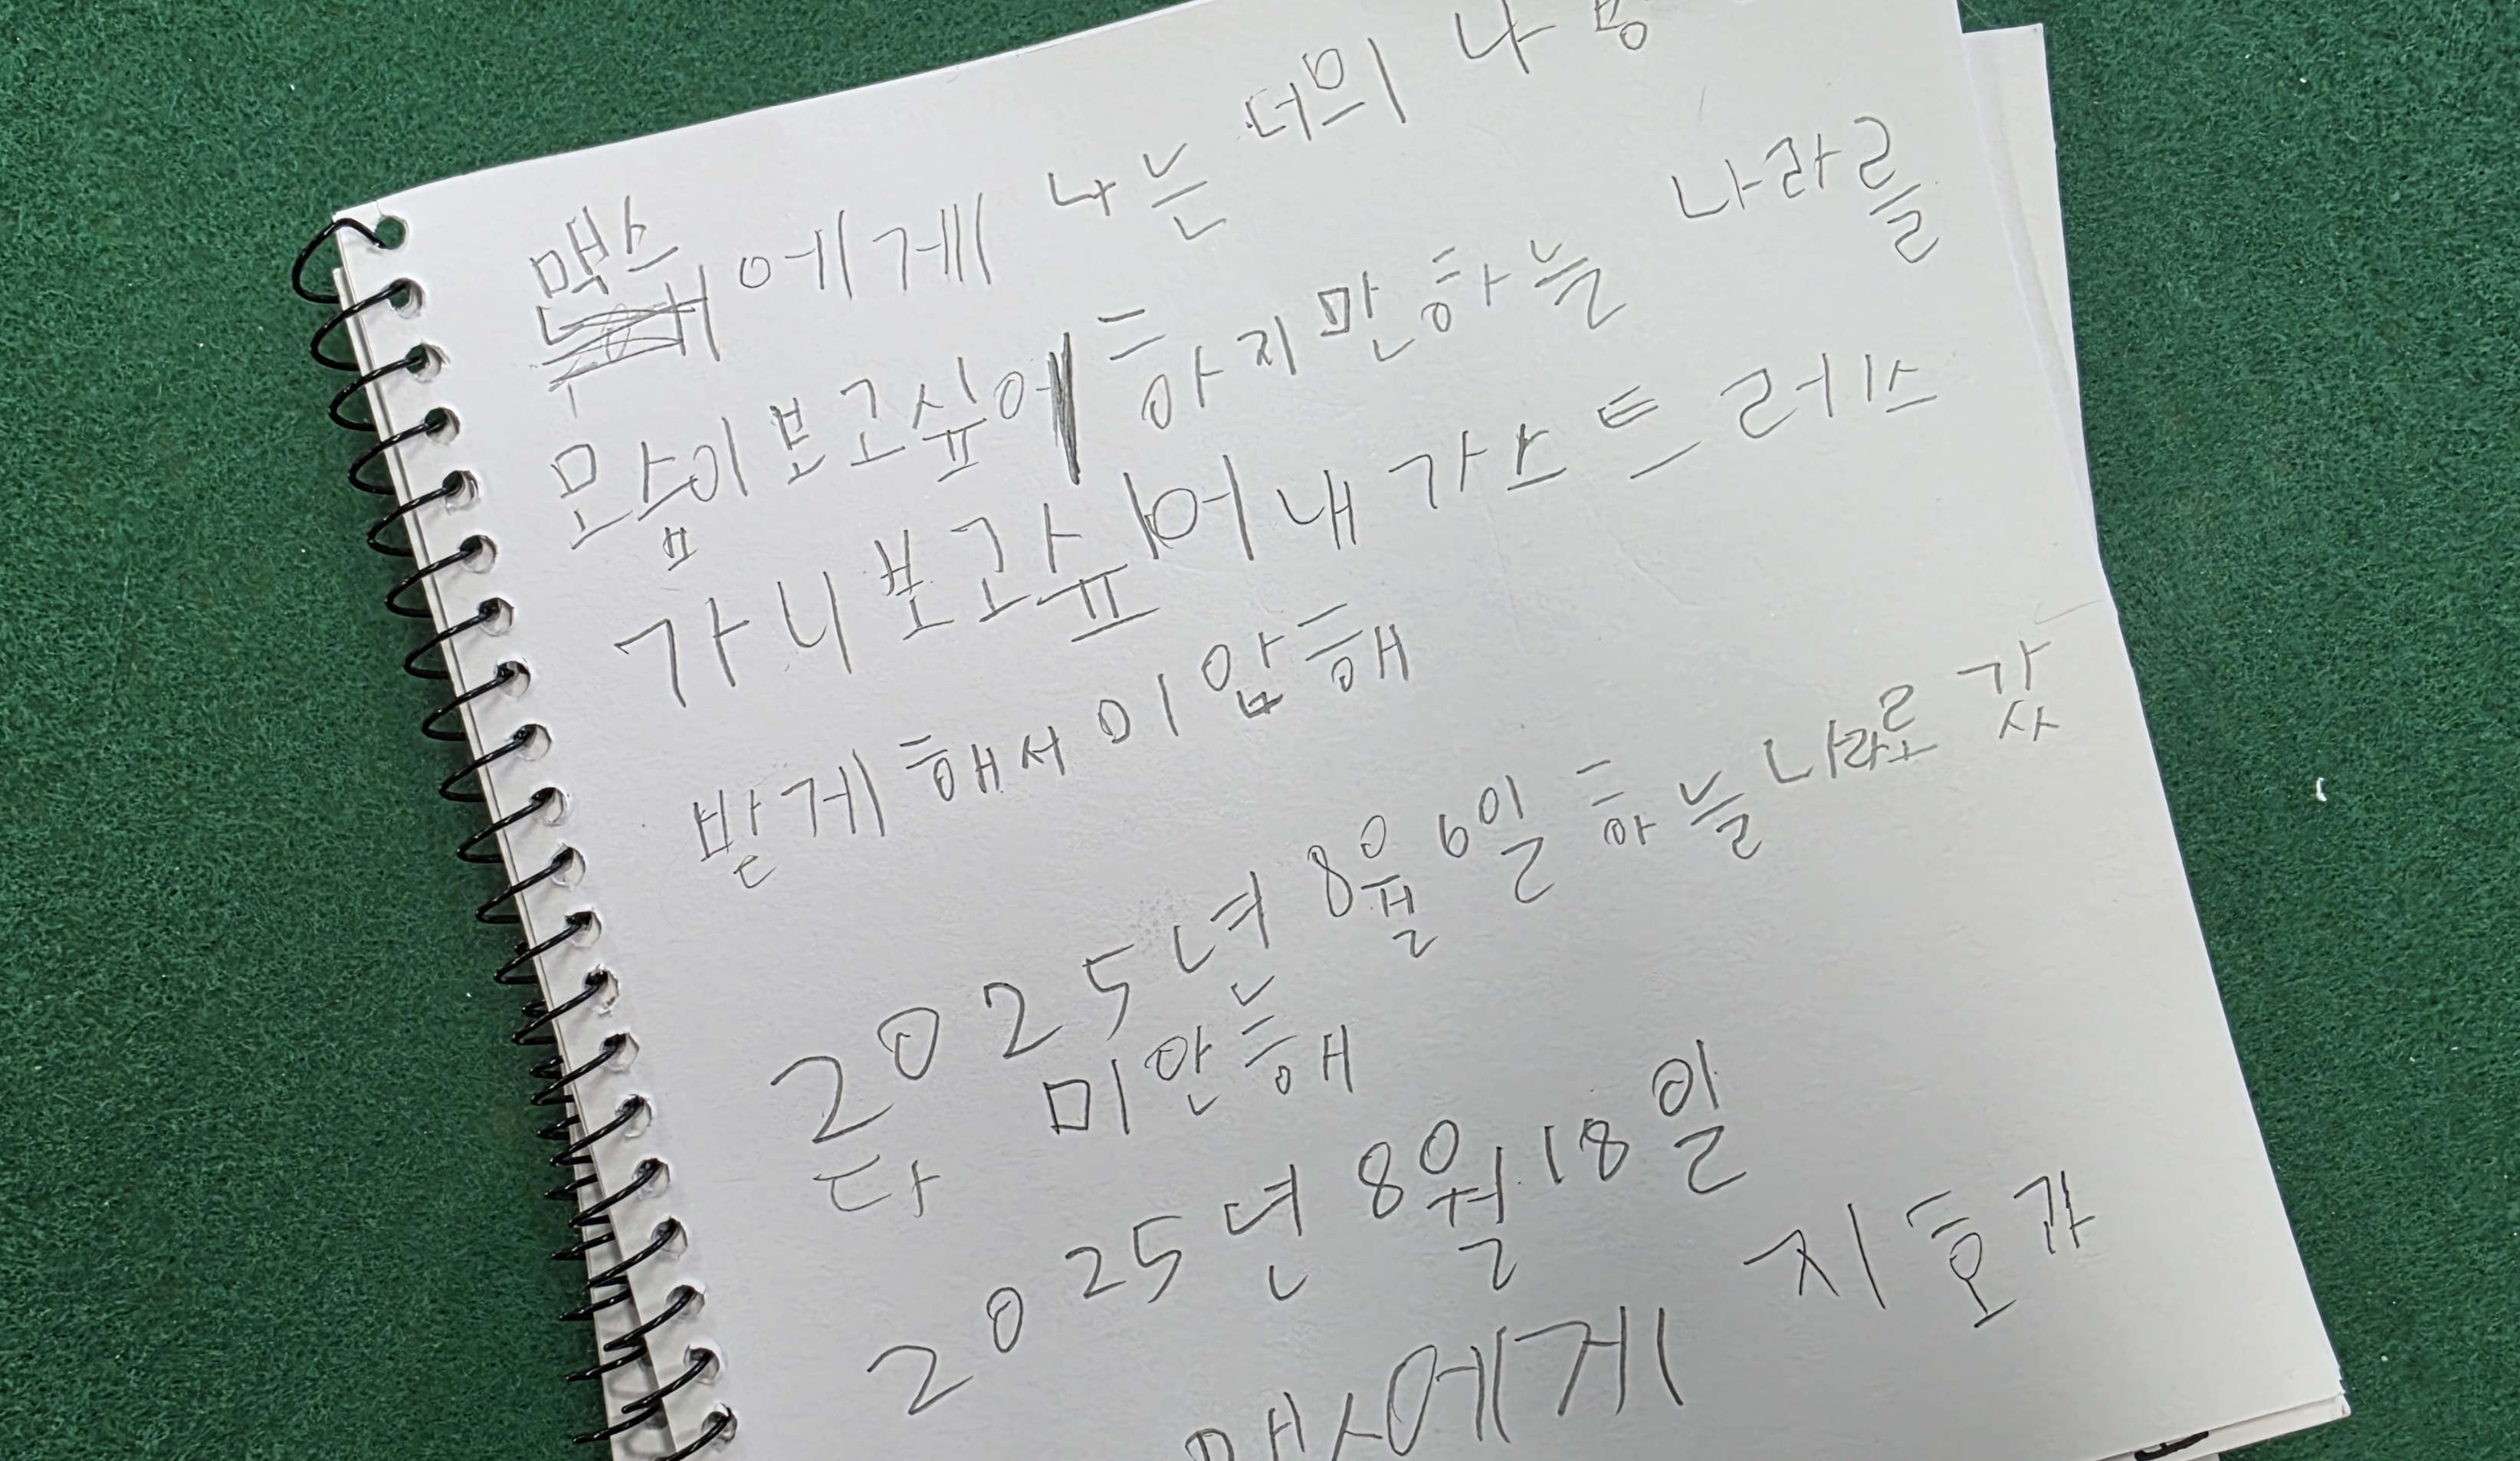 맥스에게 나는 더의 나
모습이 보고싶어 하지만 하늘 나라를
가니 보고싶어 내가 스트레스
받게 해서 미안해
2025년 8월 6일 하늘나라로 갔
다 미안해
2025년 8월 18일
맥스에게 지호가